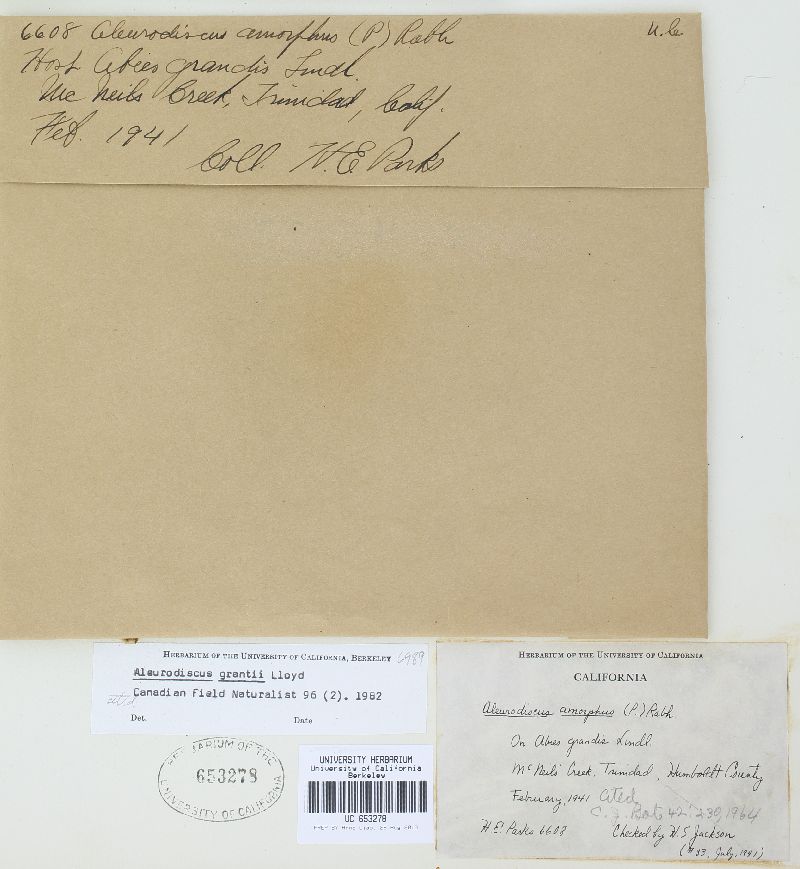 6608 Aleurodiscus amorphus (P) Rabh
U.C.
Host Abies grandis Lindl.
Mc Neils Creek, Trinidad, Calif.
Feb. 1941
Coll. H.E Parks
HERBARIUM OF THE UNIVERSITY OF CALIFORNIA, BERKELEY 6989
Aleurodiscus grantii Lloyd
Canadian Field Naturalist 96 (2). 1982
cited
Det. Date
HERBARIUM OF THE
653278
UNIVERSITY OF CALIFORNIA
UNIVERSITY HERBARIUM
University of California
Berkeley
UC 653278
HERBARIUM OF THE UNIVERSITY OF CALIFORNIA
CALIFORNIA
Aleurodiscus amorphus (P.) Rabh.
On Abies grandis Lindl.
McNeils' Creek, Trinidad, Humboldt County
February, 1941 Cited
C. J. Bot 42: 239, 1964
H.E. Parks 6608 Checked by H.S Jackson
(#33, July, 1941)